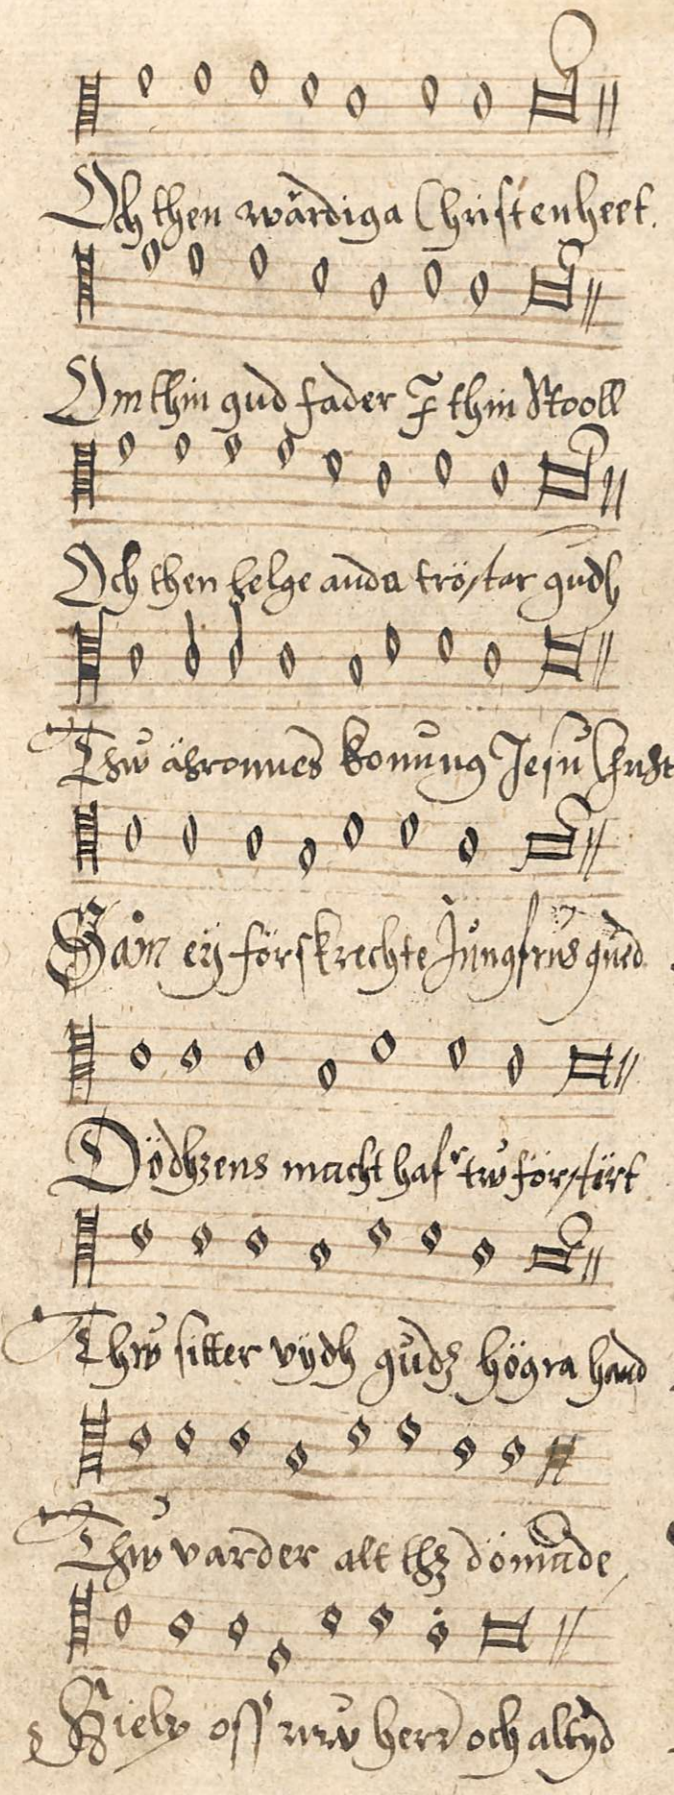 Och then wärdiga Christenheet.
Om thin gud fader thin Stooll
Och then helge anda tröstar gudh
Thw ährones konung Jesu Christ
Som eÿ förskrechte Jungfrus qued
Dödzens macht haf tw förstört
Thw sitter vÿdh gudz högra hand
Thw varder alt thz dömande
Hielp oss nw herr och altÿd